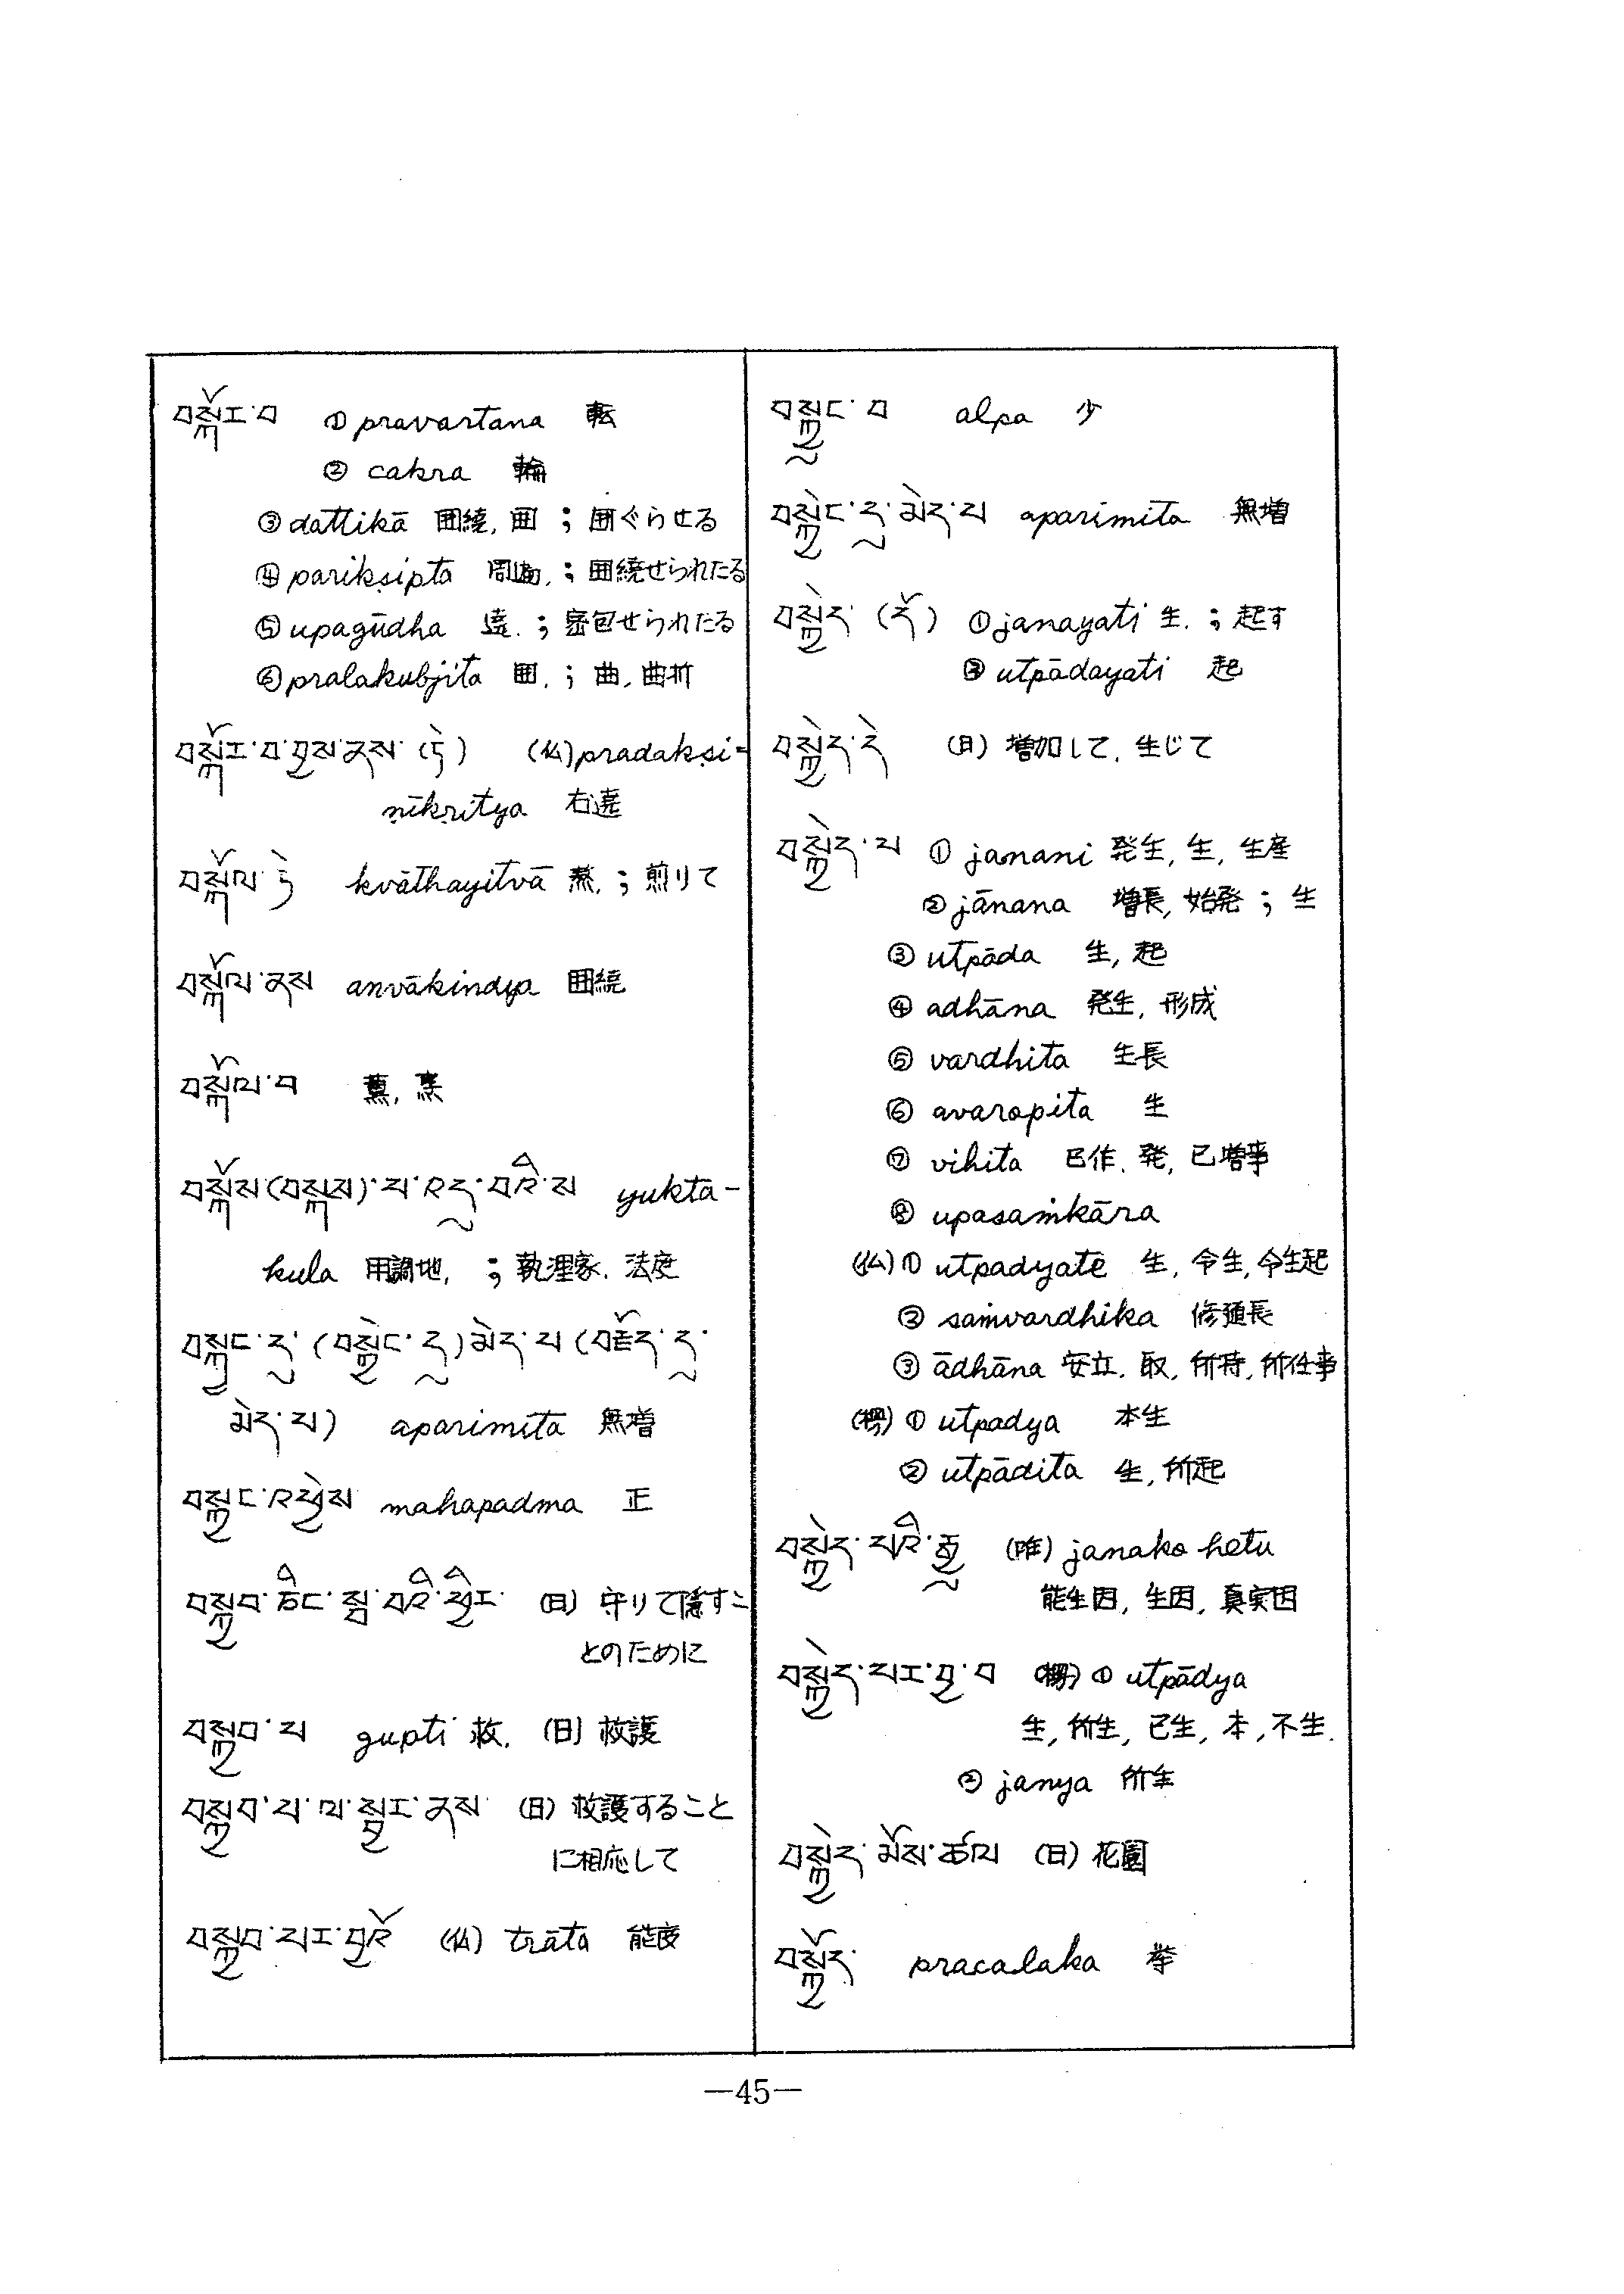 བསྐོར་བ ① pravartana 転
② cakra 輪
③ dattikā 囲繞, 囲 ; 囲ぐらせる
④ parikṣipta 周遍, ; 囲繞せられたる
⑤ upagūdha 遶. ; 密包せられたる
⑥ pralakubjita 囲, ; 曲, 曲折
བསྐོར་བ་བྱས་ནས་(ཏེ) (仏) pradakṣi-
ṇīkṛitya 右遶
བསྐོལ་ཏེ kvāthayitvā 熬, ; 煎りて
བསྐོལ་ནས anvākindya 囲繞
བསྐོལ་བ 薫, 熏
བསྐོས(བསྐས)་པ་རད་བའི་ས yukta-
kula 用調地, ; 執理家, 法度
བསྐྱང་དུ་(བསྐྱེང་དུ)མེད་པ(བརྗོད་དུ་
མེད་པ) aparimita 無増
བསྐྱང་འཕྱེས mahapadma 正
བསྐྱབ་ཅིང་སྦ་བའི་ཕྱིར་ (日) 守りて隠すこ
とのために
བསྐྱབ་པ gupti 救, (日) 救護
བསྐྱབ་པ་ལ་སྦྱར་ནས (日) 救護すること
に相応して
བསྐྱབ་པར་བྱའོ (仏) trāta 能度
བསྐྱུང་བ alpa 少
བསྐྱེང་དུ་མེད་པ aparimita 無増
བསྐྱེད་(དོ) ① janayati 生. ; 起す
② utpādayati 起
བསྐྱེད་དེ (日) 増加して, 生じて
བསྐྱེད་པ ① janani 発生, 生, 生産
② jānana 増長, 始発 ; 生
③ utpāda 生, 起
④ adhāna 発生, 形成
⑤ vardhita 生長
⑥ avaropita 生
⑦ vihita 已作, 発, 已増事
⑧ upasaṁkāra
(仏) ① utpadyate 生, 令生, 令生起
② saṁvardhika 修道長
③ ādhāna 安立, 取, 所持, 所任事
(楞) ① utpadya 本生
② utpādita 生, 所起
བསྐྱེད་པའི་རྒྱུ (唯) janako hetu
能生因, 生因, 真実因
བསྐྱེད་པར་བྱ་བ (楞) ① utpādya
生, 所生, 已生, 本, 不生.
② janya 所生
བསྐྱེད་མོས་ཚལ (日) 花園
བསྐྱོད་ pracalaka 挙
—45—